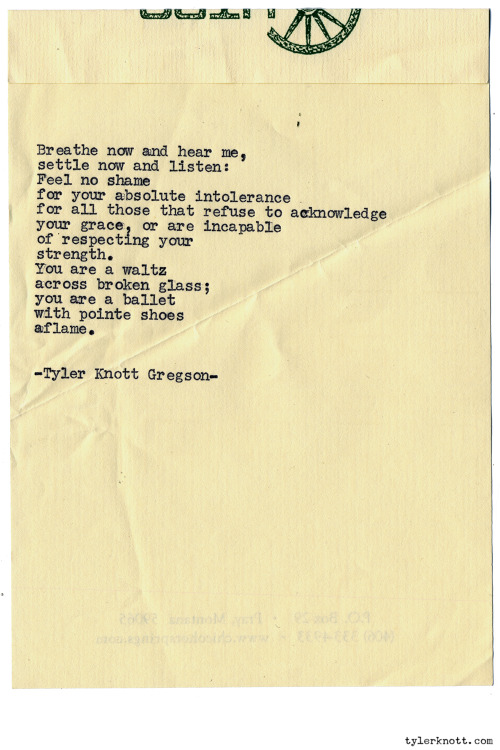 Breathe now and hear me,
settle now and listen:
Feel no shame
for your absolute intolerance
for all those that refuse to acknowledge
your grace, or are incapable
of respecting your
strength.
You are a waltz
across broken glass;
you are a ballet
with pointe shoes
aflame.
-Tyler Knott Gregson-
P.O. Box 29 • Pray, Montana 59065
(406) 333-4933 • www.chicohotsprings.com
tylerknott.com